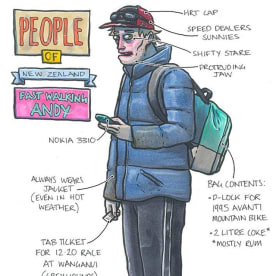 PEOPLE
OF
NEW ZEALAND
FAST WALKING
ANDY
HRT CAP
SPEED DEALERS
SUNNIES
SHIFTY STARE
PROTRUDING
JAW
NOKIA 3310
ALWAYS WEARS
JACKET
(EVEN IN HOT
WEATHER)
BAG CONTENTS:
•D-LOCK FOR
1995 AVANTI
MOUNTAIN BIKE
•2 LITRE COKE*
*MOSTLY RUM
TAB TICKET
FOR 12:20 RACE
AT WANGANUI